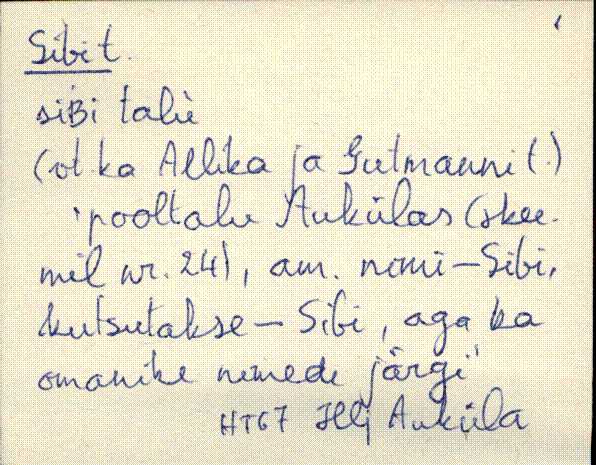 Sibi t.
siBi talù
(vt ka Allika ja Gutmanni t.)
"pooltalu Aukülas (skee-
mil nr. 24), am. nimi – Sibi,
kutsutakse – Sibi, aga ka
omanike nimede järgi"
HTG7 Hlj Auküla